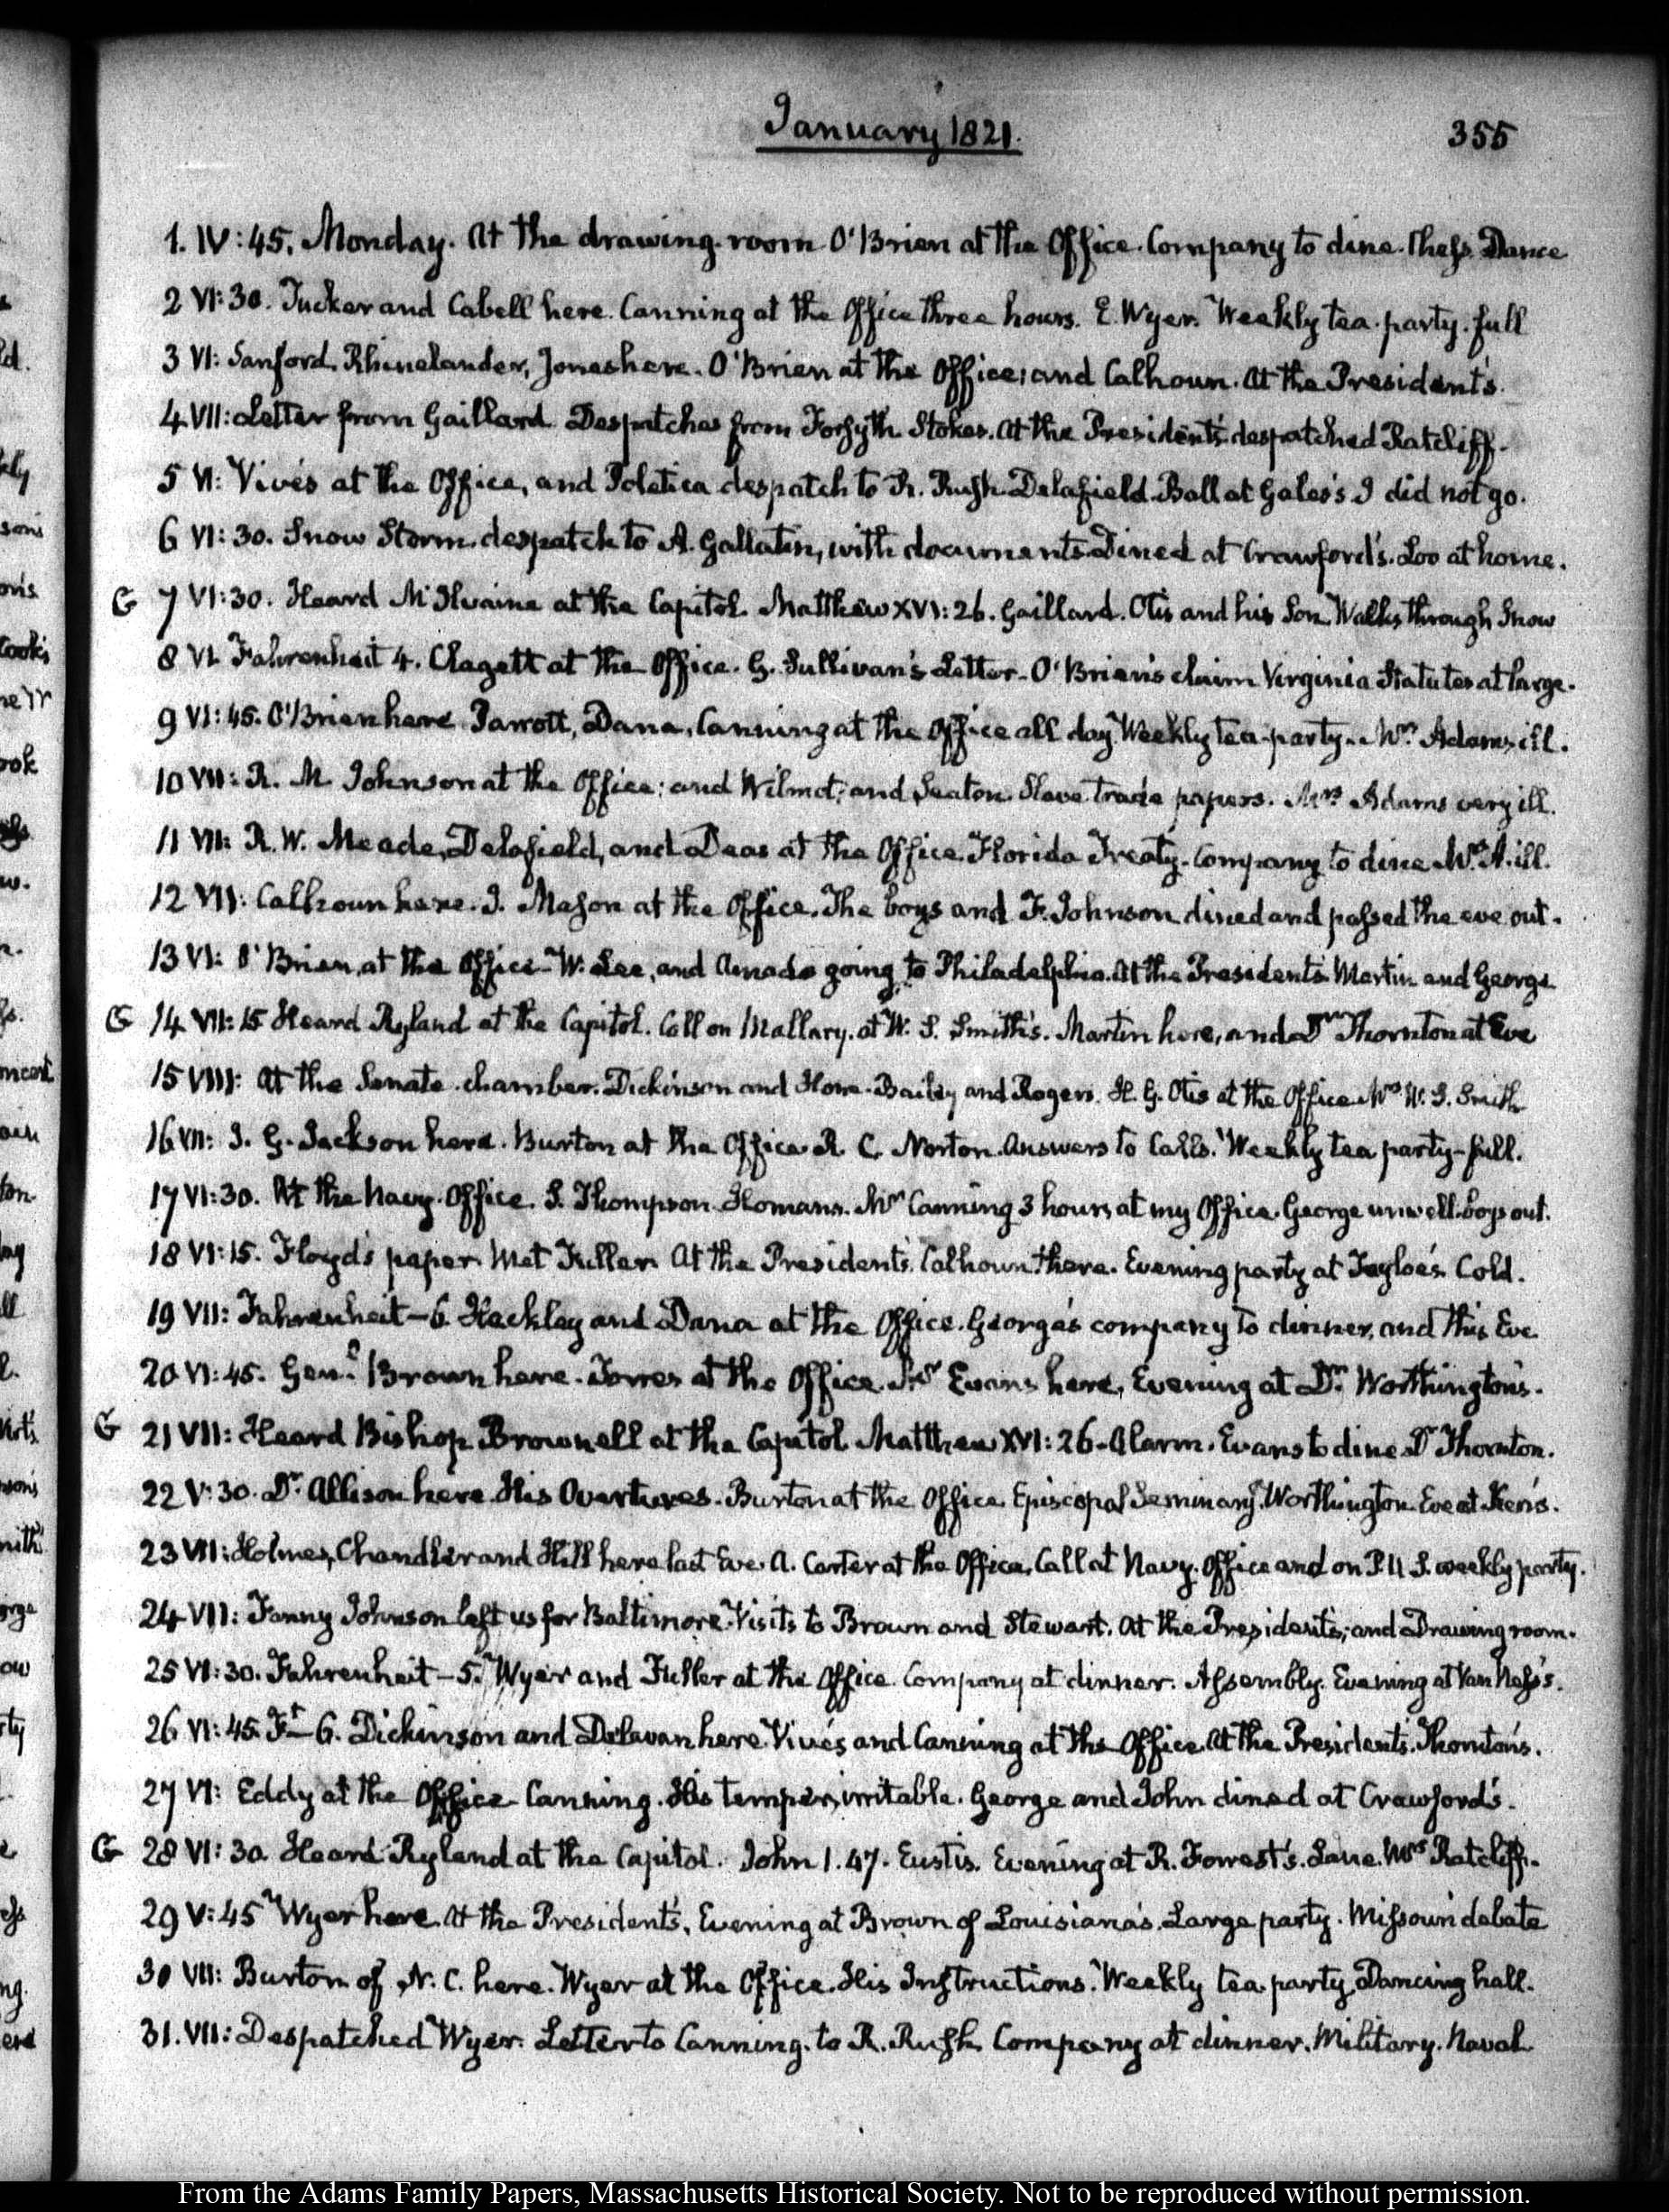 January 1821.
355
1. IV:45. Monday. At the drawing-room O'Brien at the Office. Company to dine. Chess. Dance
2 VI:30. Tucker and Cabell here. Canning at the Office three hours. E. Wyer. Weekly tea-party. full
3 VI: Sanford, Rhinelander, Jones here. O'Brien at the Office; and Calhoun. At the President's.
4 VII: Letter from Gaillard. Despatches from Forsyth. Stokes. At the President's. despatched Ratcliff.
5 VI: Vivés at the Office, and Poletica despatch to R. Rush. Delafield. Ball at Gales's I did not go.
6 VI:30. Snow Storm. despatch to A. Gallatin, with documents. Dined at Crawford's. Loo at home.
G 7 VI:30. Heard McIlvaine at the Capitol. Matthew XVI:26. Gaillard. Otis and his Son. Walks through Snow
8 VI. Fahrenheit 4. Clagett at the Office. G. Sullivan's Letter. O'Brien's claim Virginia Statutes at large.
9 VI:45. O'Brien here. Parrott, Dana, Canning at the Office all day. Weekly tea-party. Mrs. Adams, ill.
10 VII: R. M. Johnson at the Office; and Wilmot; and Seaton. Slave trade papers. Mrs Adams very ill.
11 VII: R. W. Meade, Delafield, and Deas at the Office. Florida Treaty. Company to dine. Mrs A. ill.
12 VII: Calhoun here. J. Mason at the Office. The boys and F. Johnson dined and passed the eve out.
13 VI: O'Brien, at the Office. W. Lee, and Amado going to Philadelphia. At the President's. Martin and George
G 14 VII:15 Heard Ryland at the Capitol. Call on Mallary. at W. S. Smith's. Martin here, and Dr Thornton at Eve
15 VIII: At the Senate-chamber. Dickinson and Howe. Bailey and Rogers. H. G. Otis at the Office. Mrs W. S. Smith
16 VII: J. G. Jackson here. Burton at the Office. R. C. Norton. Answers to Calls. Weekly tea party-full.
17 VI:30. At the Navy-Office. S. Thompson. Homans. Mr Canning 3 hours, at my Office. George unwell. boys out.
18 VI:15. Floyd's paper. Met Fuller. At the President's. Calhoun there. Evening party at Tayloe's. Cold.
19 VII: Fahrenheit -6. Heckley and Dana at the Office. George's company to dinner, and this Eve
20 VI:45. Genl. Brown here. Torres at the Office. Evans here, Evening at Dr. Worthington's.
G 21 VII: Heard Bishop Brownell at the Capitol. Matthew XVI:26. Alarm. Evans to dine Dr Thornton.
22 V:30. Dr. Allison here. His Overtures. Burton at the Office. Episcopal Seminary. Worthington. Eve at Ker's.
23 VII: Holmes, Chandler and Hill here last Eve. A. Carter at the Office. Call at Navy-Office and on P.U.S. weekly party.
24 VII: Fanny Johnson left us for Baltimore. Visits to Brown and Stewart. At the President's; and Drawing room.
25 VI:30. Fahrenheit -5. Wyer and Fuller at the Office. Company at dinner. Assembly. Evening at Van Ness's.
26 VI:45. Ft -6. Dickinson and Delavan here. Vivés and Canning at the Office. At the President's. Thornton's.
27 VI: Eddy at the Office. Canning. His temper, irritable. George and John dined at Crawford's.
G 28 VI:30. Heard Ryland at the Capitol. John 1.47. Eustis. Evening at R. Forrest's. Lane. Mrs Ratcliff.
29 V:45 Wyer here. At the President's, Evening at Brown of Louisiana's. Large party. Missouri debate
30 VII: Burton of N. C. here. Wyer at the Office. His Instructions. Weekly tea party. Dancing hall.
31. VII: Despatched Wyer. Letter to Canning. to R. Rush. Company at dinner. Military. Naval.
From the Adams Family Papers, Massachusetts Historical Society. Not to be reproduced without permission.